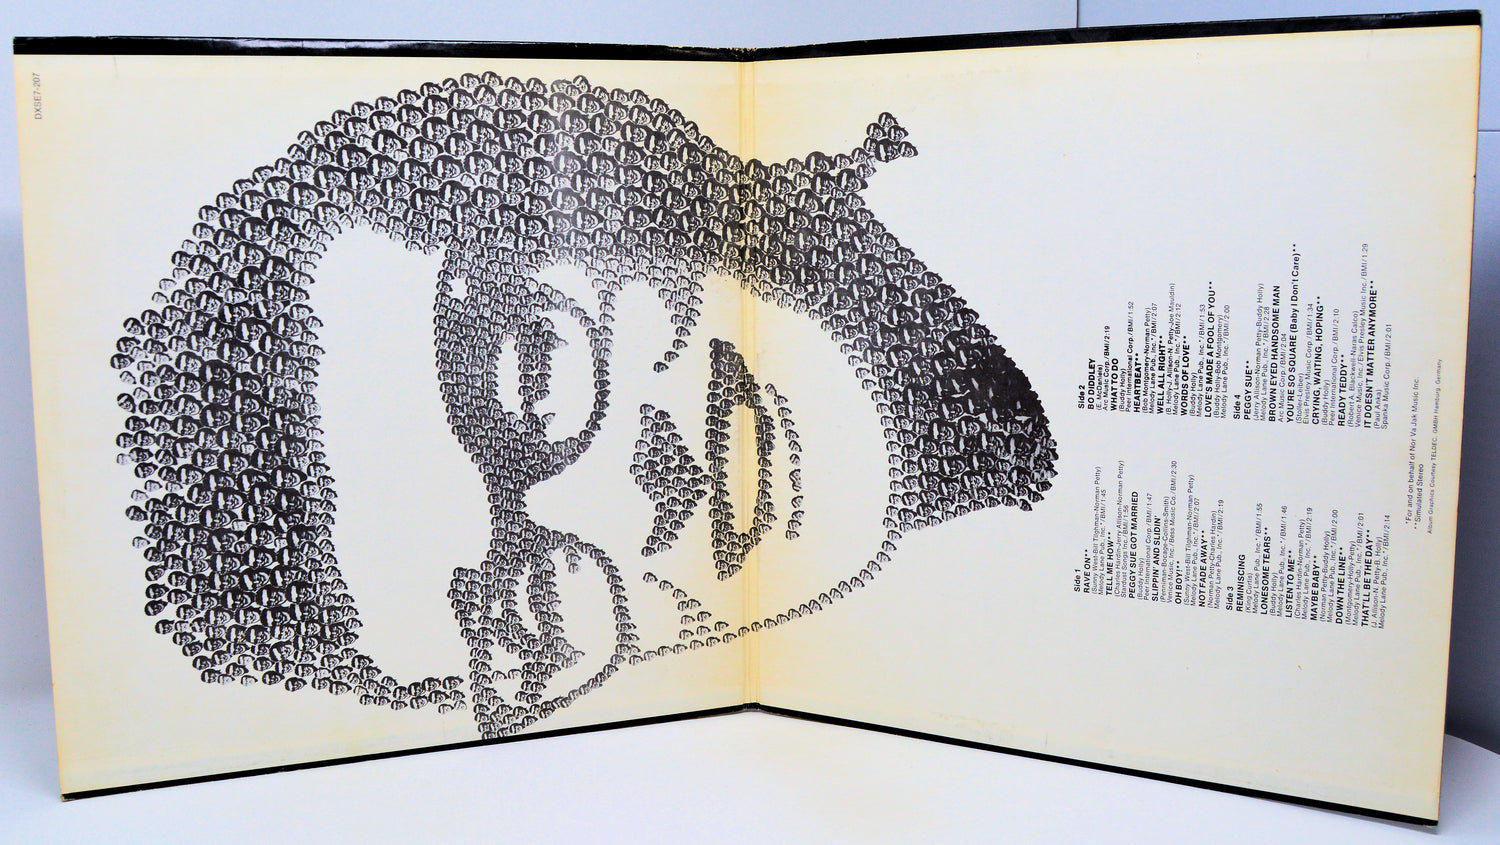 DXSE7-207
Side 1
RAVE ON**
(Sunny West-Bill Tilghman-Norman Petty)
Melody Lane Pub., Inc.*/BMI/1:45
TELL ME HOW**
(Charles Hardin-Jerry Allison-Norman Petty)
Stardust Songs Inc./BMI/1:56
PEGGY SUE GOT MARRIED
(Buddy Holly)
Peer International Corp./BMI/1:47
SLIPPIN' AND SLIDIN'
(Penniman-Bocage-Collins-Smith)
Venice Music, Inc./Bess Music Co./BMI/2:30
OH BOY!**
(Sunny West-Bill Tilghman-Norman Petty)
Melody Lane Pub., Inc.*/BMI/2:07
NOT FADE AWAY**
(Norman Petty-Charles Hardin)
Melody Lane Pub., Inc.*/BMI/2:19
Side 2
BO DIDDLEY
(E. McDaniels)
Arc Music Corp./BMI/2:19
WHAT TO DO
(Buddy Holly)
Peer International Corp./BMI/1:52
HEARTBEAT**
(Bob Montgomery-Norman Petty)
Melody Lane Pub., Inc.*/BMI/2:07
WELL ALL RIGHT**
(B. Holly-J. Allison-N. Petty-Joe Mauldin)
Melody Lane Pub., Inc.*/BMI/2:12
WORDS OF LOVE**
(Buddy Holly)
Melody Lane Pub., Inc.*/BMI/1:53
LOVE'S MADE A FOOL OF YOU**
(Buddy Holly-Bob Montgomery)
Melody Lane Pub., Inc.*/BMI/2:00
Side 3
REMINISCING
(King Curtis)
Melody Lane Pub., Inc.*/BMI/1:55
LONESOME TEARS**
(Buddy Holly)
Melody Lane Pub., Inc.*/BMI/1:46
LISTEN TO ME**
(Charles Hardin-Norman Petty)
Melody Lane Pub., Inc.*/BMI/2:19
MAYBE BABY**
(Norman Petty-Buddy Holly)
Melody Lane Pub., Inc.*/BMI/2:00
DOWN THE LINE**
(Montgomery-Holly-Petty)
Melody Lane Pub., Inc.*/BMI/2:01
THAT'LL BE THE DAY**
(J. Allison-N. Petty-B. Holly)
Melody Lane Pub., Inc.*/BMI/2:14
Side 4
PEGGY SUE**
(Jerry Allison-Norman Petty-Buddy Holly)
Melody Lane Pub., Inc.*/BMI/2:28
BROWN EYED HANDSOME MAN
Arc Music Corp./BMI/2:04
YOU'RE SO SQUARE (Baby I Don't Care)**
(Stoller-Leiber)
Elvis Presley Music Corp./BMI/1:34
CRYING, WAITING, HOPING**
(Buddy Holly)
Peer International Corp./BMI/2:10
READY TEDDY**
(Robert A. Blackwell-Naras Calco)
Venice Music, Inc./Elvis Presley Music Inc./BMI/1:29
IT DOESN'T MATTER ANYMORE**
(Paul Anka)
Spanka Music Corp./BMI/2:01
*For and on behalf of Nor Va Jak Music Inc.
**Simulated Stereo
Album Graphics Courtesy TELDEC, GMBH Hamburg, Germany